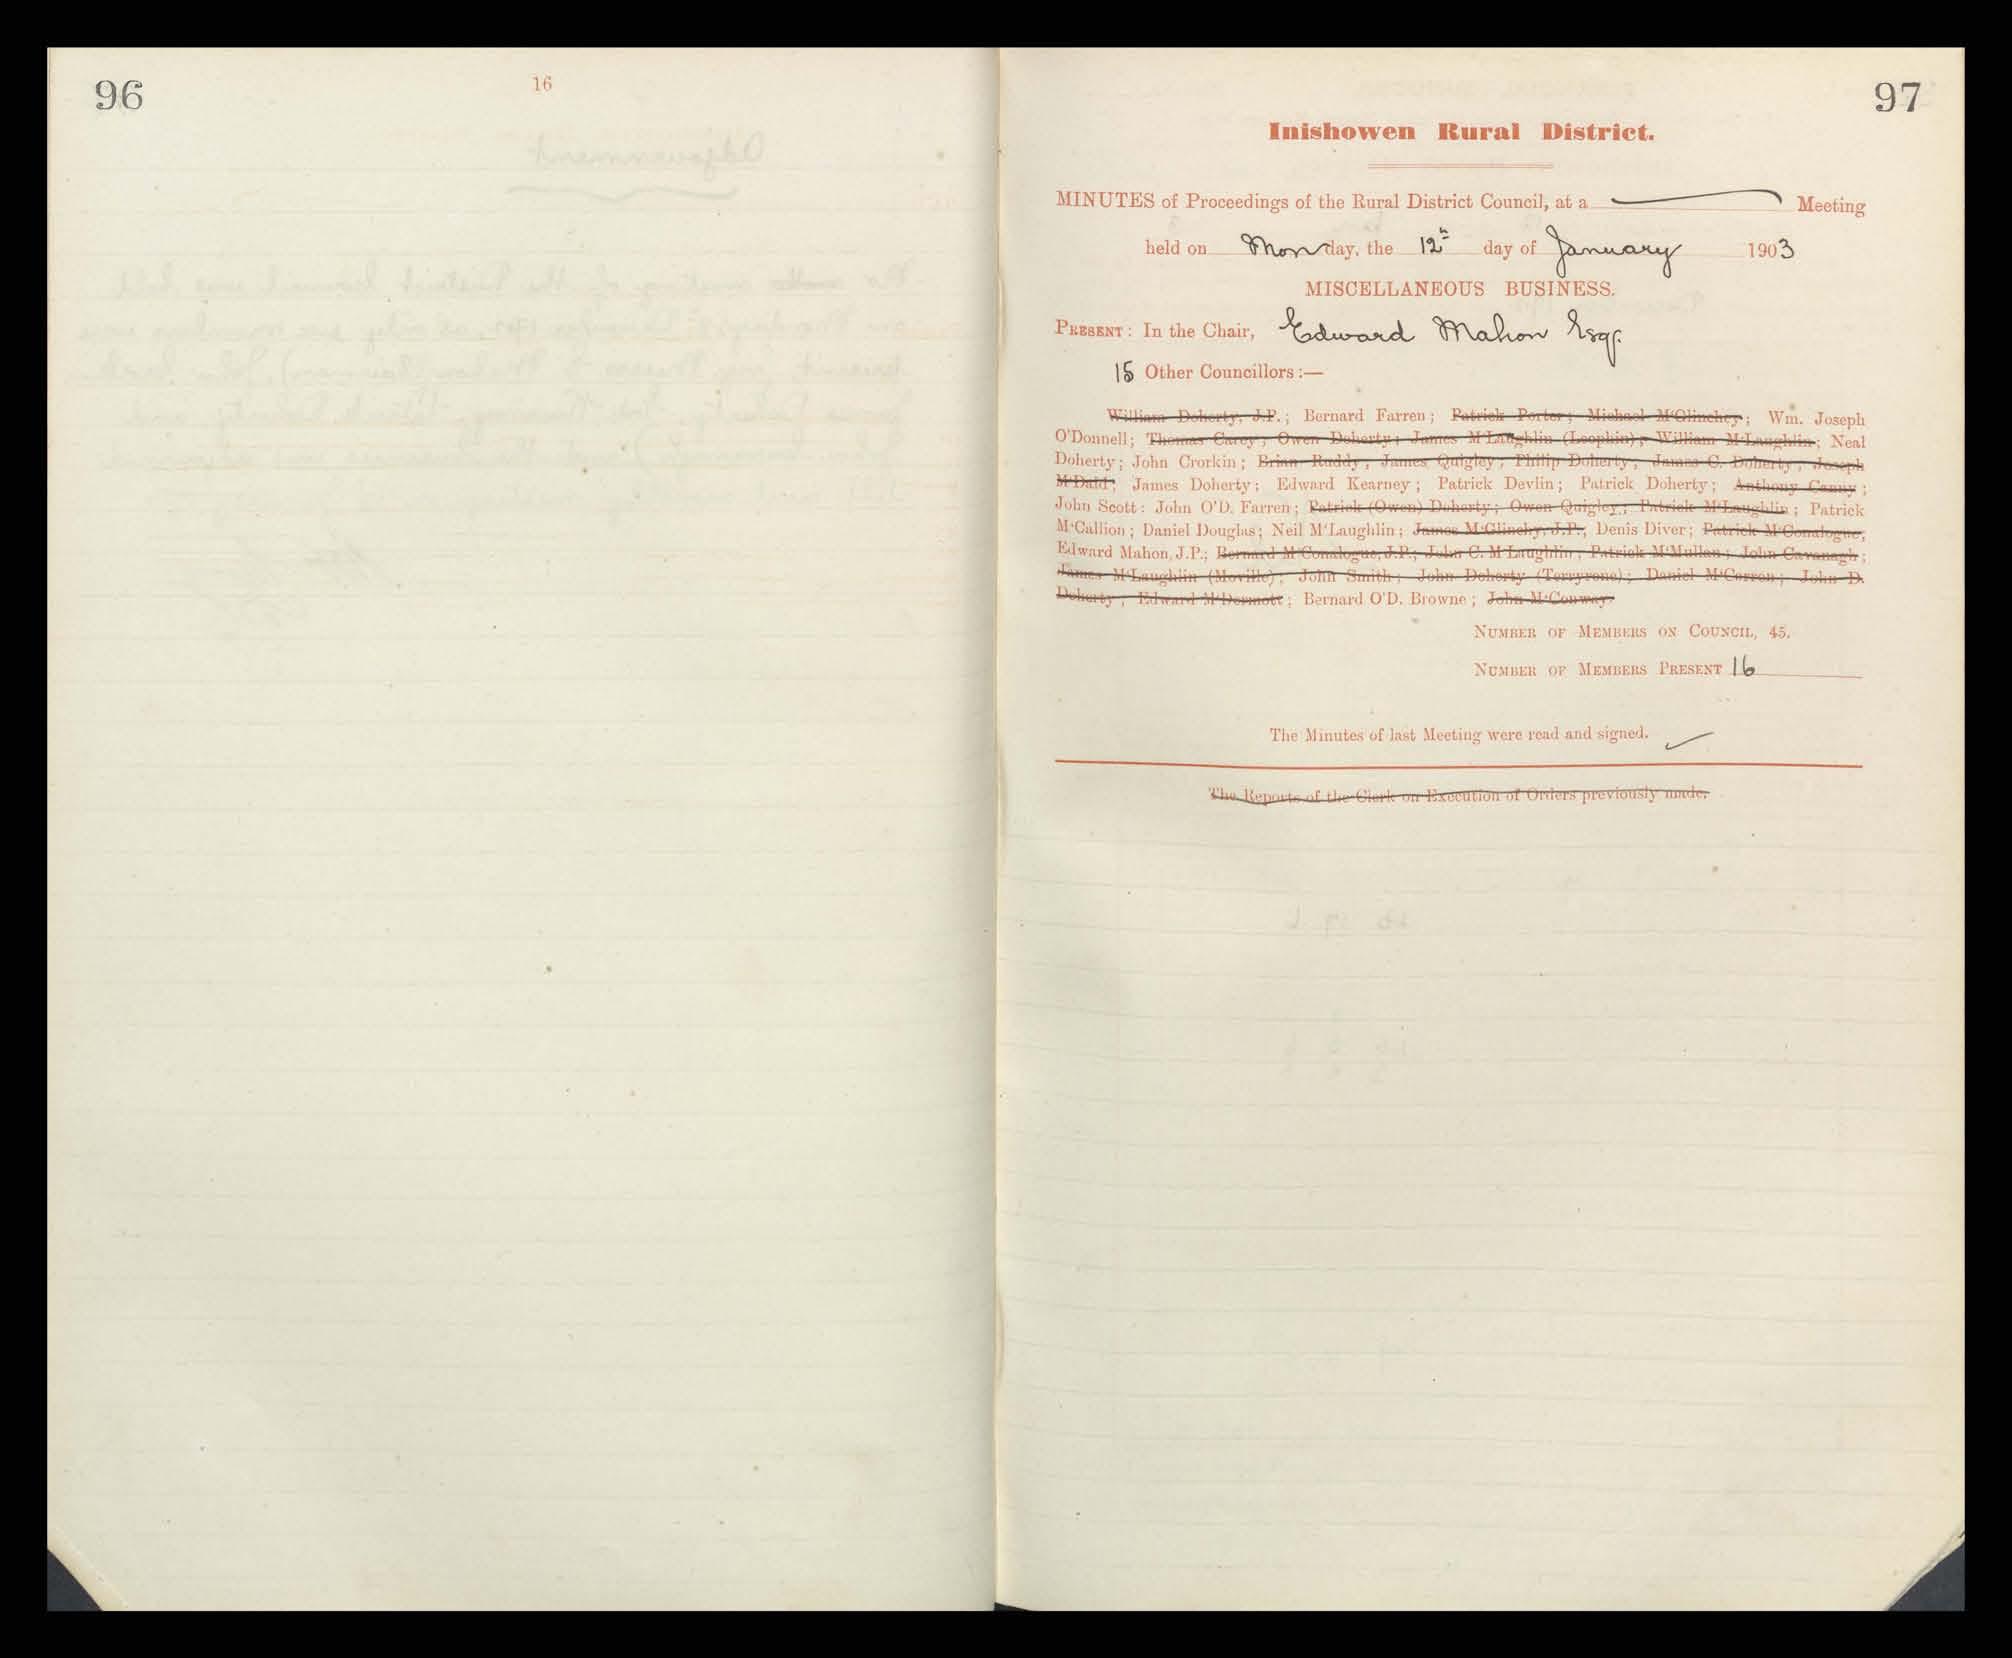 96
16
97
Inishowen Rural District.
MINUTES of Proceedings of the Rural District Council, at a Meeting
held on Monday, the 12th day of January 1903
MISCELLANEOUS BUSINESS.
PRESENT: In the Chair, Edward Mahon Esqr.
15 Other Councillors:—
William Doherty, J.P.; Bernard Farren; Patrick Porter; Michael M'Glinchey; Wm. Joseph
O'Donnell; Thomas Carey; Owen Doherty; James M'Laughlin (Leophin); William M'Laughlin; Neal
Doherty; John Crorkin; Brian Ruddy; James Quigley; Philip Doherty; James C. Doherty; Joseph
M'Daid; James Doherty; Edward Kearney; Patrick Devlin; Patrick Doherty; Anthony Canny;
John Scott: John O'D. Farren; Patrick (Owen) Doherty; Owen Quigley; Patrick M'Laughlin; Patrick
M'Callion; Daniel Douglas; Neil M'Laughlin; James M'Glinchy, J.P.; Denis Diver; Patrick M'Conalogue,
Edward Mahon, J.P.; Bernard M'Conalogue, J.P.; John C. M'Laughlin; Patrick M'Mullan; John Cavanagh;
James M'Laughlin (Moville); John Smith; John Doherty (Terryrone); Daniel M'Carron; John D.
Doherty; Edward M'Dermott; Bernard O'D. Browne; John M'Conway.
NUMBER OF MEMBERS ON COUNCIL, 45.
NUMBER OF MEMBERS PRESENT 16
The Minutes of last Meeting were read and signed.
The Reports of the Clerk on Execution of Orders previously made.